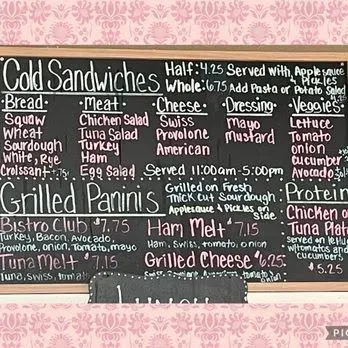 Cold Sandwiches
Half: 4.25 Served with Applesauce & Pickles
Whole: 6.75 Add Pasta or Potato Salad
Bread
Squaw
Wheat
Sourdough
White, Rye
Croissant +.75
Meat
Chicken Salad
Tuna Salad
Turkey
Ham
Egg Salad
Cheese
Swiss
Provolone
American
Dressing
Mayo
Mustard
Veggies
Lettuce
Tomato
Onion
Cucumber
Avocado
Served 11:00am-5:00pm
Grilled Paninis
Grilled on Fresh
Thick Cut Sourdough
Applesauce & Pickles on Side
Bistro Club $7.75
Turkey, Bacon, Avocado,
Provolone, onion, tomato, mayo
Tuna Melt $7.15
Tuna, Swiss, tomato,
Ham Melt $7.15
Ham, Swiss, tomato, onion
Grilled Cheese $6.25
tomato, onion
Protein
Chicken or
Tuna Plate
Served on lettuce
w/tomatos and
cucumbers
$5.25
Lunch